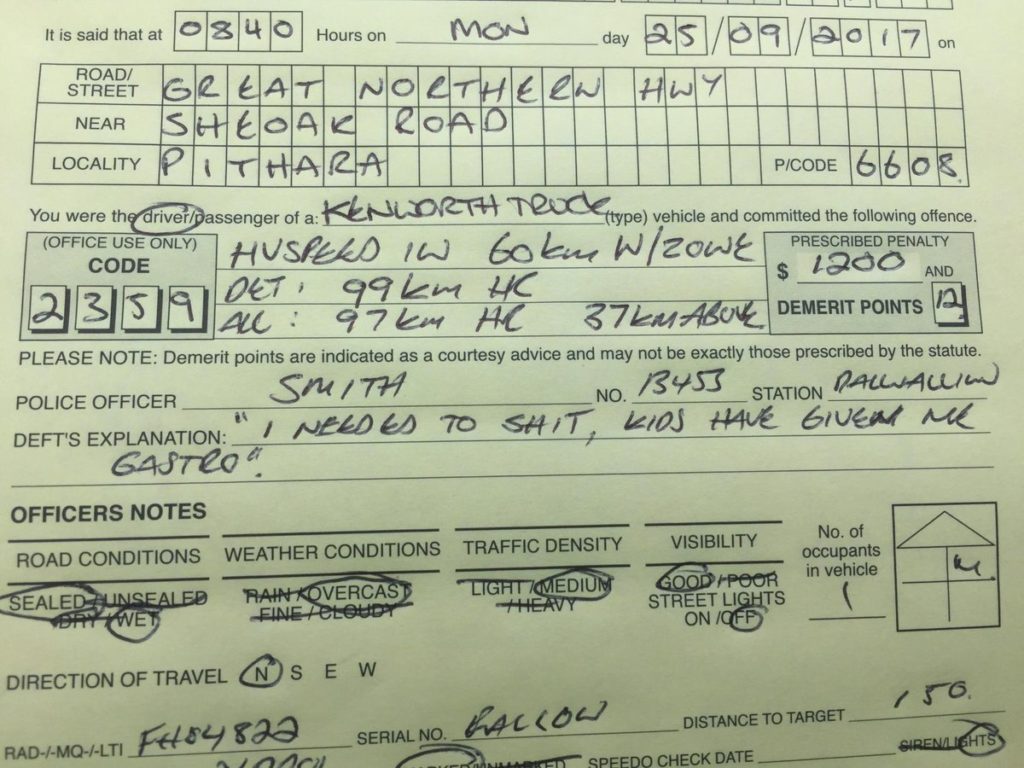 It is said that at 0840 Hours on MON day 25/09/2017 on
ROAD/STREET GREAT NORTHERN HWY
NEAR SHEOAK ROAD
LOCALITY PITHARA P/CODE 6608
You were the driver/passenger of a: KENWORTH TRUCK (type) vehicle and committed the following offence.
(OFFICE USE ONLY) HVSPEED IN 60km W/ZONE PRESCRIBED PENALTY
CODE DET: 99km HR $ 1200 AND
2359 ALL: 97km HR 37km ABOVE DEMERIT POINTS 12
PLEASE NOTE: Demerit points are indicated as a courtesy advice and may not be exactly those prescribed by the statute.
POLICE OFFICER SMITH NO. 13453 STATION DALWALLINU
DEFT'S EXPLANATION: "I NEEDED TO SHIT, KIDS HAVE GIVEN ME
GASTRO".
OFFICERS NOTES
ROAD CONDITIONS WEATHER CONDITIONS TRAFFIC DENSITY VISIBILITY No. of occupants in vehicle
SEALED/UNSEALED RAIN/OVERCAST LIGHT/MEDIUM GOOD/POOR 1
DRY/WET FINE/CLOUDY /HEAVY STREET LIGHTS
ON/OFF
DIRECTION OF TRAVEL N S E W
RAD-/-MQ-/-LTI SERIAL NO. DISTANCE TO TARGET 150.
SPEEDO CHECK DATE SIREN/LIGHTS